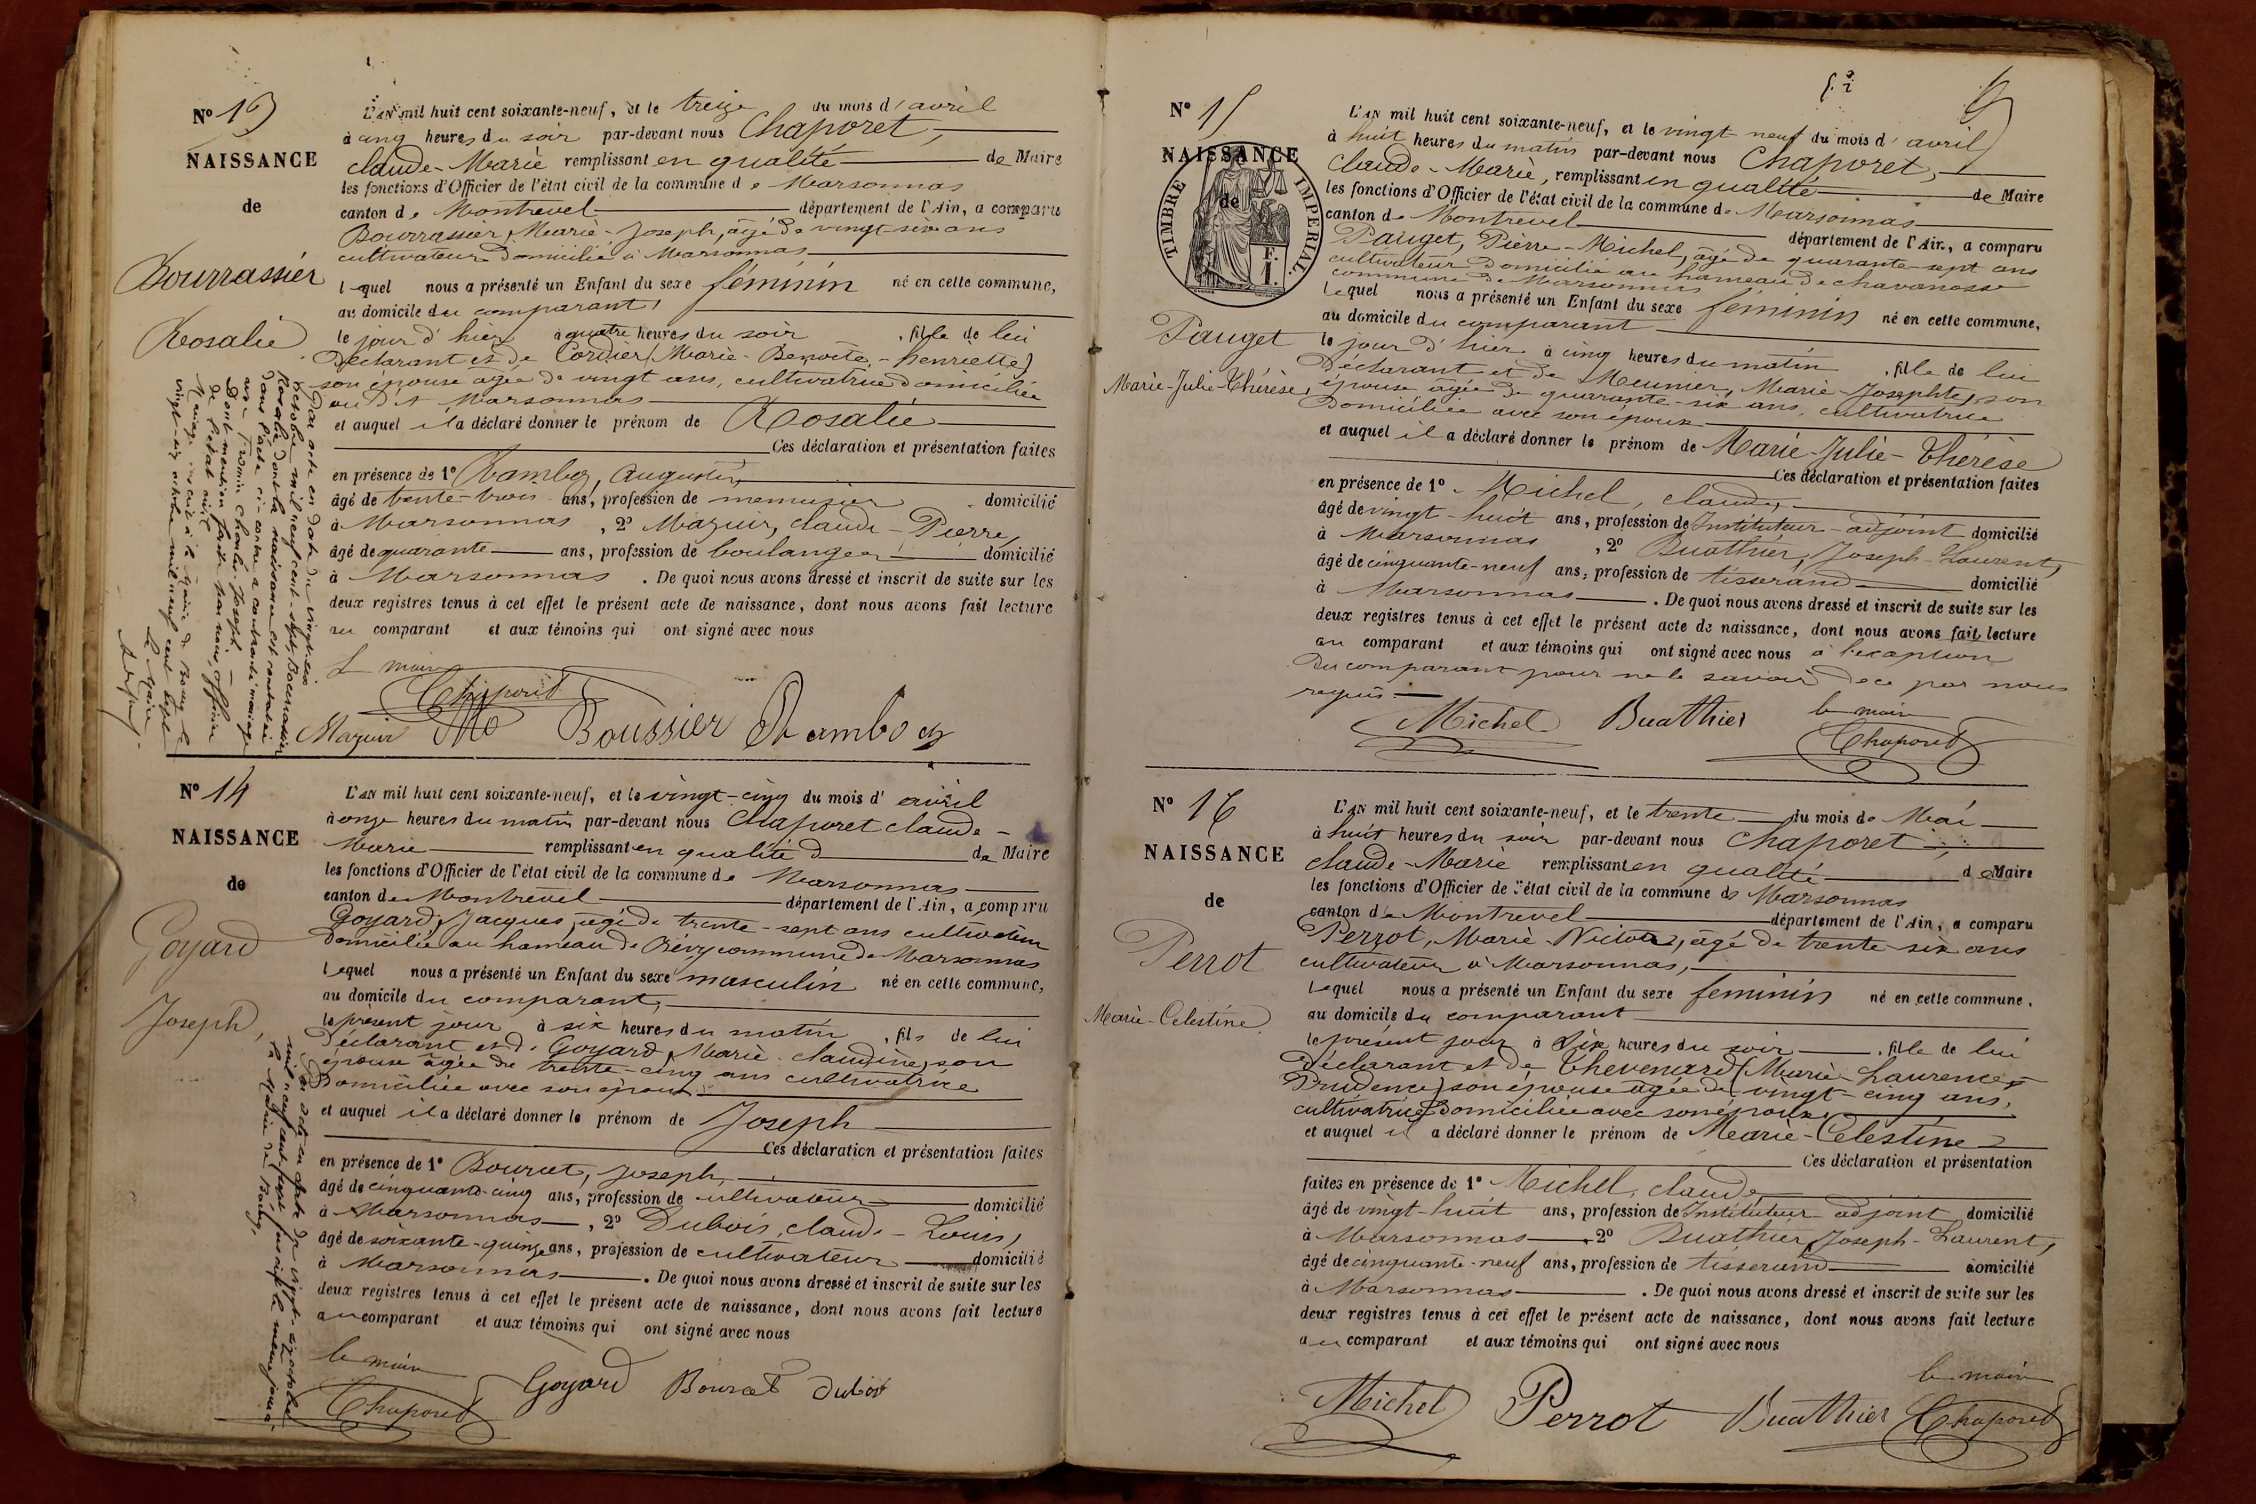 Nº 13
NAISSANCE
de
Bourrassier
Rosalie
L'AN mil huit cent soixante-neuf, et le treize du mois d'avril
à cinq heures du soir par-devant nous Chaporet,
claude-Marie remplissant en qualité de Maire
les fonctions d'Officier de l'état civil de la commune de Marsonnas
canton de Montrevel département de l'Ain, a comparu
Bourrassier, Marie-Joseph, âgé de vingt-six ans
cultivateur domicilié à Marsonnas
lequel nous a présenté un Enfant du sexe féminin né en cette commune,
au domicile du comparant,
le jour d'hier à quatre heures du soir, fille de lui
déclarant et de Cordier (Marie-Benoite-henriette)
son épouse âgée de vingt ans, cultivatrice domiciliée
audit Marsonnas
et auquel il a déclaré donner le prénom de Rosalie
Ces déclaration et présentation faites
en présence de 1º Ramboz, Augustin,
âgé de trente-trois ans, profession de menuisier domicilié
à Marsonnas, 2º Mazuir, claude-Pierre,
âgé de quarante ans, profession de boulanger domicilié
à Marsonnas. De quoi nous avons dressé et inscrit de suite sur les
deux registres tenus à cet effet le présent acte de naissance, dont nous avons fait lecture
au comparant et aux témoins qui ont signé avec nous
le maire
Chaporet
Mazuir Boussier Ramboz
Par acte en date du vingt-six
octobre mil neuf cent-sept, Bourrassier
Rosalie dont la naissance est constatée
dans l'acte ci-contre a contracté mariage
avec Romin Charles-Joseph
Dont mention faite par nous, officier
de l'état civil
Mariage inscrit à la mairie de Bourg le
vingt-six octobre mil neuf cent sept
Le Maire
Nº 14
NAISSANCE
de
Goyard
Joseph,
L'AN mil huit cent soixante-neuf, et le vingt-cinq du mois d'avril
à onze heures du matin par-devant nous Chaporet claude-
Marie remplissant en qualité de Maire
les fonctions d'Officier de l'état civil de la commune de Marsonnas
canton de Montrevel département de l'Ain, a comparu
Goyard, Jacques, âgé de trente-sept ans cultivateur
domicilié au hameau de Bévy commune de Marsonnas
lequel nous a présenté un Enfant du sexe masculin né en cette commune,
au domicile du comparant,
le présent jour à six heures du matin, fils de lui
déclarant et de Goyard, Marie-claudine, son
épouse âgée de trente-cinq ans cultivatrice
Domiciliée avec son époux
et auquel il a déclaré donner le prénom de Joseph
Ces déclaration et présentation faites
en présence de 1º Bourcet, Joseph,
âgé de cinquante-cinq ans, profession de cultivateur domicilié
à Marsonnas, 2º Dubois, claude-Louis,
âgé de soixante-quinze ans, profession de cultivateur domicilié
à Marsonnas. De quoi nous avons dressé et inscrit de suite sur les
deux registres tenus à cet effet le présent acte de naissance, dont nous avons fait lecture
au comparant et aux témoins qui ont signé avec nous
le maire
Chaporet Goyard Bourcet Dubois
Nº 15
NAISSANCE
de
TIMBRE IMPERIAL
F.
1.
Pauget
Marie-Julie-Thérèse,
L'AN mil huit cent soixante-neuf, et le vingt-neuf du mois d'avril
à huit heures du matin par-devant nous Chaporet,
Claude-Marie, remplissant en qualité de Maire
les fonctions d'Officier de l'état civil de la commune de Marsonnas
canton de Montrevel département de l'Ain, a comparu
Pauget, Pierre-Michel, âgé de quarante-sept ans
cultivateur domicilié au hameau de chavanosse
commune de Marsonnas
lequel nous a présenté un Enfant du sexe féminin né en cette commune,
au domicile du comparant
le jour d'hier à cinq heures du matin, fille de lui
déclarant et de Meunier, Marie-Josephte, son
épouse âgée de quarante-six ans, cultivatrice
Domiciliée avec son époux
et auquel il a déclaré donner le prénom de Marie-Julie-Thérèse
Ces déclaration et présentation faites
en présence de 1º Michel, claude,
âgé de vingt-huit ans, profession de Instituteur-adjoint domicilié
à Marsonnas, 2º Buathier, Joseph-Laurent,
âgé de cinquante-neuf ans, profession de tisserand domicilié
à Marsonnas. De quoi nous avons dressé et inscrit de suite sur les
deux registres tenus à cet effet le présent acte de naissance, dont nous avons fait lecture
au comparant et aux témoins qui ont signé avec nous à l'exception
du comparant pour ne le savoir de ce par nous
requis
Michel Buathier le maire
Chaporet
Nº 16
NAISSANCE
de
Perrot
Marie-Celestine
L'AN mil huit cent soixante-neuf, et le trente du mois de Mai
à huit heures du soir par-devant nous Chaporet,
claude-Marie remplissant en qualité de Maire
les fonctions d'Officier de l'état civil de la commune de Marsonnas
canton de Montrevel département de l'Ain, a comparu
Perrot, Marie-Victor, âgé de trente-six ans
cultivateur à Marsonnas,
lequel nous a présenté un Enfant du sexe féminin né en cette commune,
au domicile du comparant
le présent jour à six heures du soir, fille de lui
déclarant et de Thevenard (Marie-Laurence-
Prudence) son épouse âgée de vingt-cinq ans,
cultivatrice domiciliée avec son époux,
et auquel il a déclaré donner le prénom de Marie-Celestine
Ces déclaration et présentation
faites en présence de 1º Michel, claude
âgé de vingt-huit ans, profession de Instituteur adjoint domicilié
à Marsonnas, 2º Buathier, Joseph-Laurent,
âgé de cinquante-neuf ans, profession de tisserand domicilié
à Marsonnas. De quoi nous avons dressé et inscrit de suite sur les
deux registres tenus à cet effet le présent acte de naissance, dont nous avons fait lecture
au comparant et aux témoins qui ont signé avec nous
le maire
Michel Perrot Buathier Chaporet